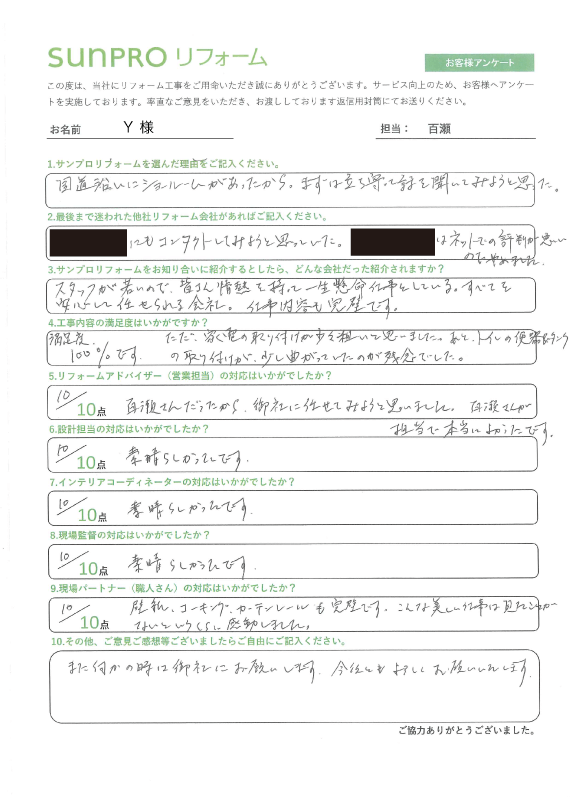 SUNPRO リフォーム
お客様アンケート
この度は、当社にリフォーム工事をご用命いただき誠にありがとうございます。サービス向上のため、お客様へアンケー
トを実施しております。率直なご意見をいただき、お渡ししております返信用封筒にてお送りください。
お名前 Y 様 担当： 百瀬
1.サンプロリフォームを選んだ理由をご記入ください。
国道沿いにショールームがあったから。まずは立ち寄って話を聞いてみようと思った。
2.最後まで迷われた他社リフォーム会社があればご記入ください。
にもコンタクトしてみようと思っていた。 はネットでの評判が悪い
のでやめました。
3.サンプロリフォームをお知り合いに紹介するとしたら、どんな会社だった紹介されますか？
スタッフが若いので、皆さん情熱を持って一生懸命仕事をしている。すべてを
安心して任せられる会社。仕事内容も完璧です。
4.工事内容の満足度はいかがですか？
満足度、 ただ、家電の取り付けが少々粗いと思いました。あと、トイレの便器&タンク
100%です。 の取り付けが、少し曲がっていたのが残念でした。
5.リフォームアドバイザー（営業担当）の対応はいかがでしたか？
10/10点 百瀬さんだったから、御社に任せてみようと思いました。百瀬さんが
担当で本当によかったです。
6.設計担当の対応はいかがでしたか？
10/10点 素晴らしかったです。
7.インテリアコーディネーターの対応はいかがでしたか？
10/10点 素晴らしかったです。
8.現場監督の対応はいかがでしたか？
10/10点 素晴らしかったです。
9.現場パートナー（職人さん）の対応はいかがでしたか？
10/10点 壁紙、コーキング、カーテンレールも完璧です。こんな美しい仕事は見たことが
ないというくらいに感動しました。
10.その他、ご意見ご感想等ございましたらご自由にご記入ください。
また何かの時は御社にお願いします。今後ともよろしくお願いいたします。
ご協力ありがとうございました。